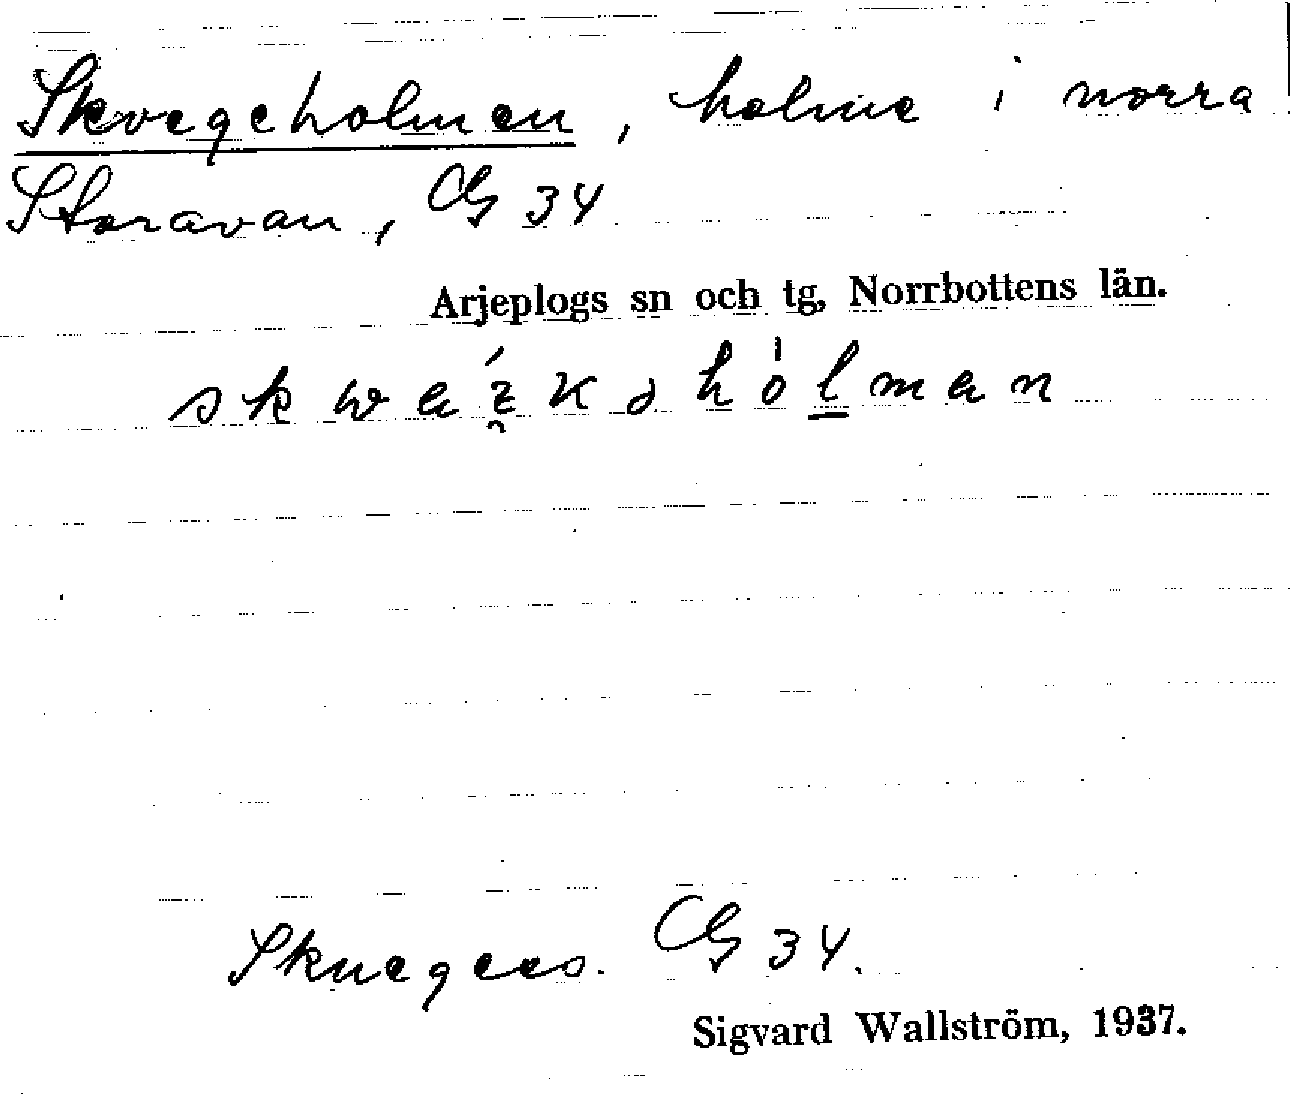 Skvegeholmen, holme i norra
Storavan, CG 34
Arjeplogs sn och tg, Norrbottens län.
Skuegees. CG 34.
Sigvard Wallström, 1937.